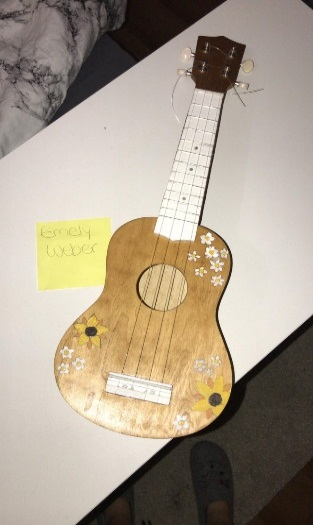 Emely
Weber